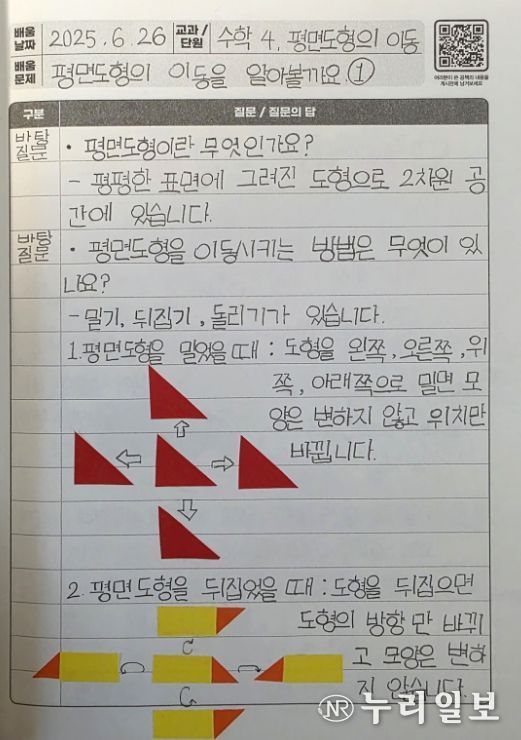 배움 날짜 2025.6.26 교과/단원 수학 4. 평면도형의 이동
배움 문제 평면도형의 이동을 알아볼까요 ①
구분 질문 / 질문의 답
바탕 질문 • 평면도형이란 무엇인가요?
- 평평한 표면에 그려진 도형으로 2차원 공
간에 있습니다.
바탕 질문 • 평면도형을 이동시키는 방법은 무엇이 있
나요?
- 밀기, 뒤집기, 돌리기가 있습니다.
1. 평면도형을 밀었을 때 : 도형을 왼쪽, 오른쪽, 위
쪽, 아래쪽으로 밀면 모
양은 변하지 않고 위치만
바뀝니다.
2. 평면도형을 뒤집었을 때 : 도형을 뒤집으면
도형의 방향만 바뀌
고 모양은 변하
지 않습니다.
NR 누리일보